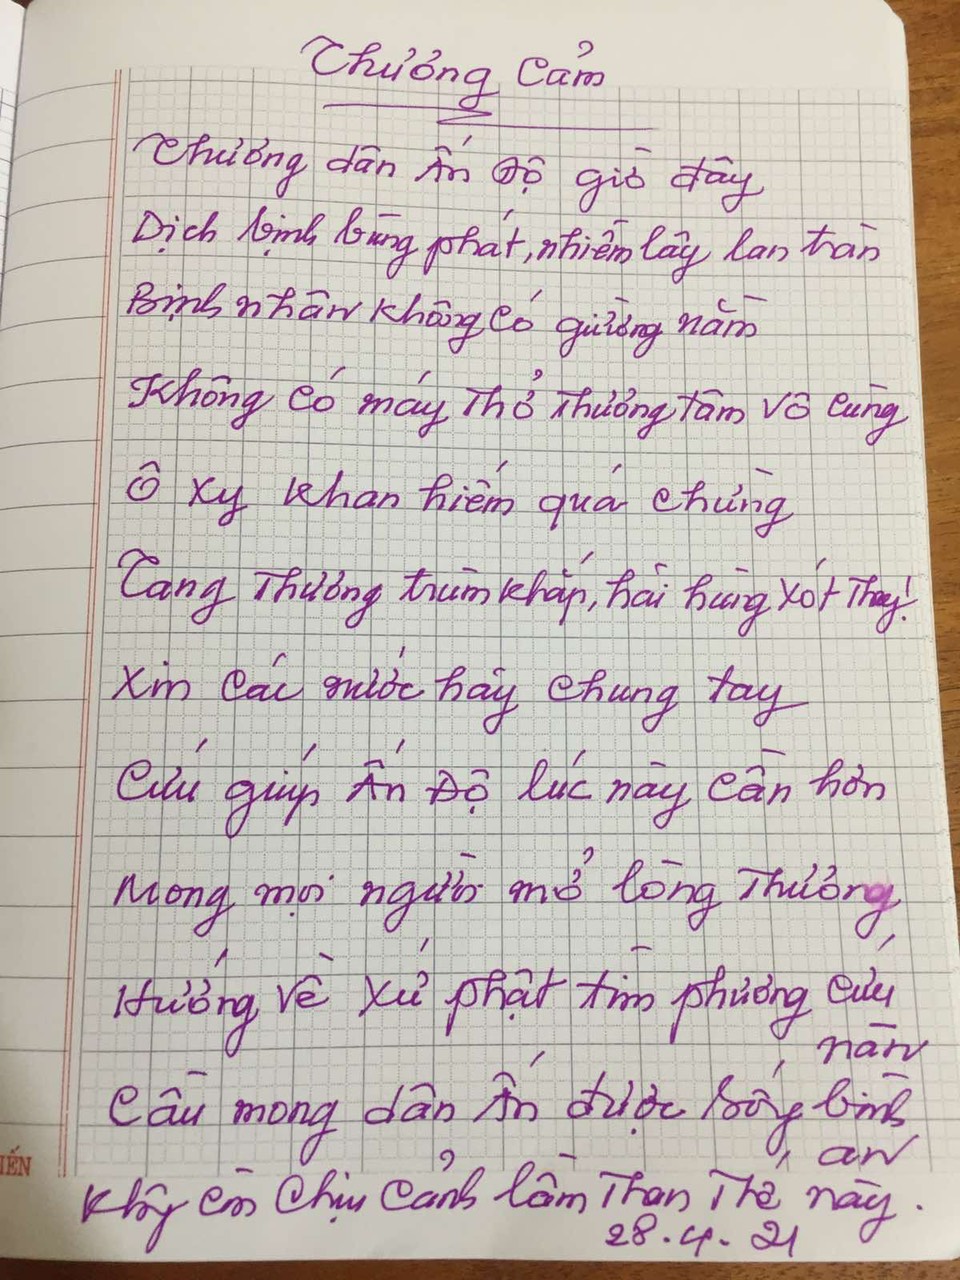 Thương Cảm
Thương dân Ấn Độ giờ đây
Dịch bịnh bùng phát, nhiễm lây lan tràn
Bịnh nhân không có giường nằm
Không có máy thở thương tâm vô cùng
Ô xy khan hiếm quá chừng
Tang thương trùm khắp, hãi hùng xót thay!
Xin các nước hãy chung tay
Cứu giúp Ấn Độ lúc này cần hơn
Mong mọi người mở lòng thương
Hướng về xứ phật tìm phương cứu nàn
Cầu mong dân Ấn được sống bình an
Không còn chịu cảnh lầm than thế này.
28.4.21
IẾN